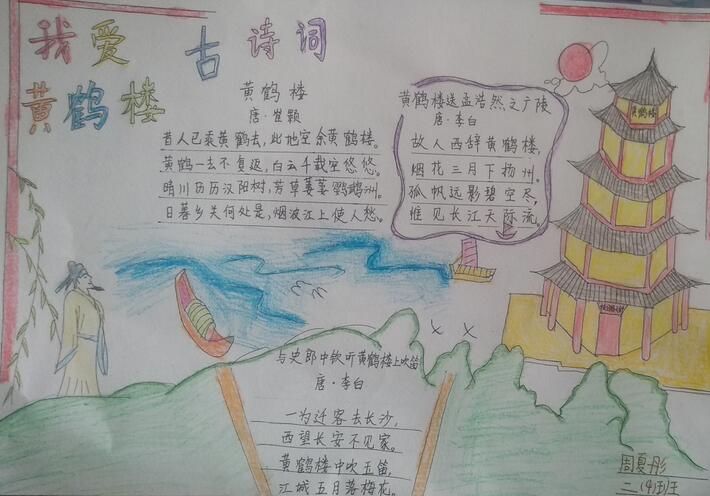 我爱古诗词
黄鹤楼
黄鹤楼
唐·崔颢
昔人已乘黄鹤去，此地空余黄鹤楼。
黄鹤一去不复返，白云千载空悠悠。
晴川历历汉阳树，芳草萋萋鹦鹉洲。
日暮乡关何处是，烟波江上使人愁。
黄鹤楼送孟浩然之广陵
唐·李白
故人西辞黄鹤楼，
烟花三月下扬州。
孤帆远影碧空尽，
惟见长江天际流
黄鹤楼
与史郎中钦听黄鹤楼上吹笛
唐·李白
一为迁客去长沙，
西望长安不见家。
黄鹤楼中吹玉笛，
江城五月落梅花。
周夏彤
二、(4)班